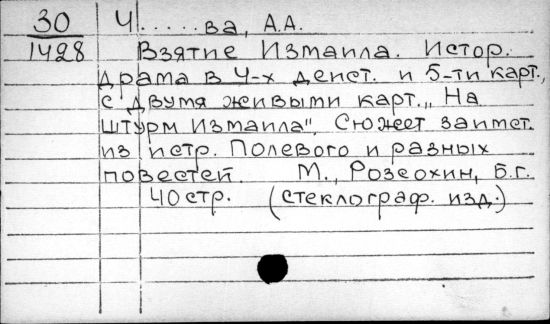 30 Ч.....ва, А.А.
1428 Взятие Измаила. Истор.
драма в 4-х дейст. и 5-ти карт.,
с двумя живыми карт. „На
штурм Измаила". Сюжет заимст.
из истр. Полевого и разных
повестей. М., Розсохин, б.г.
40 стр. (стеклограф. изд.)